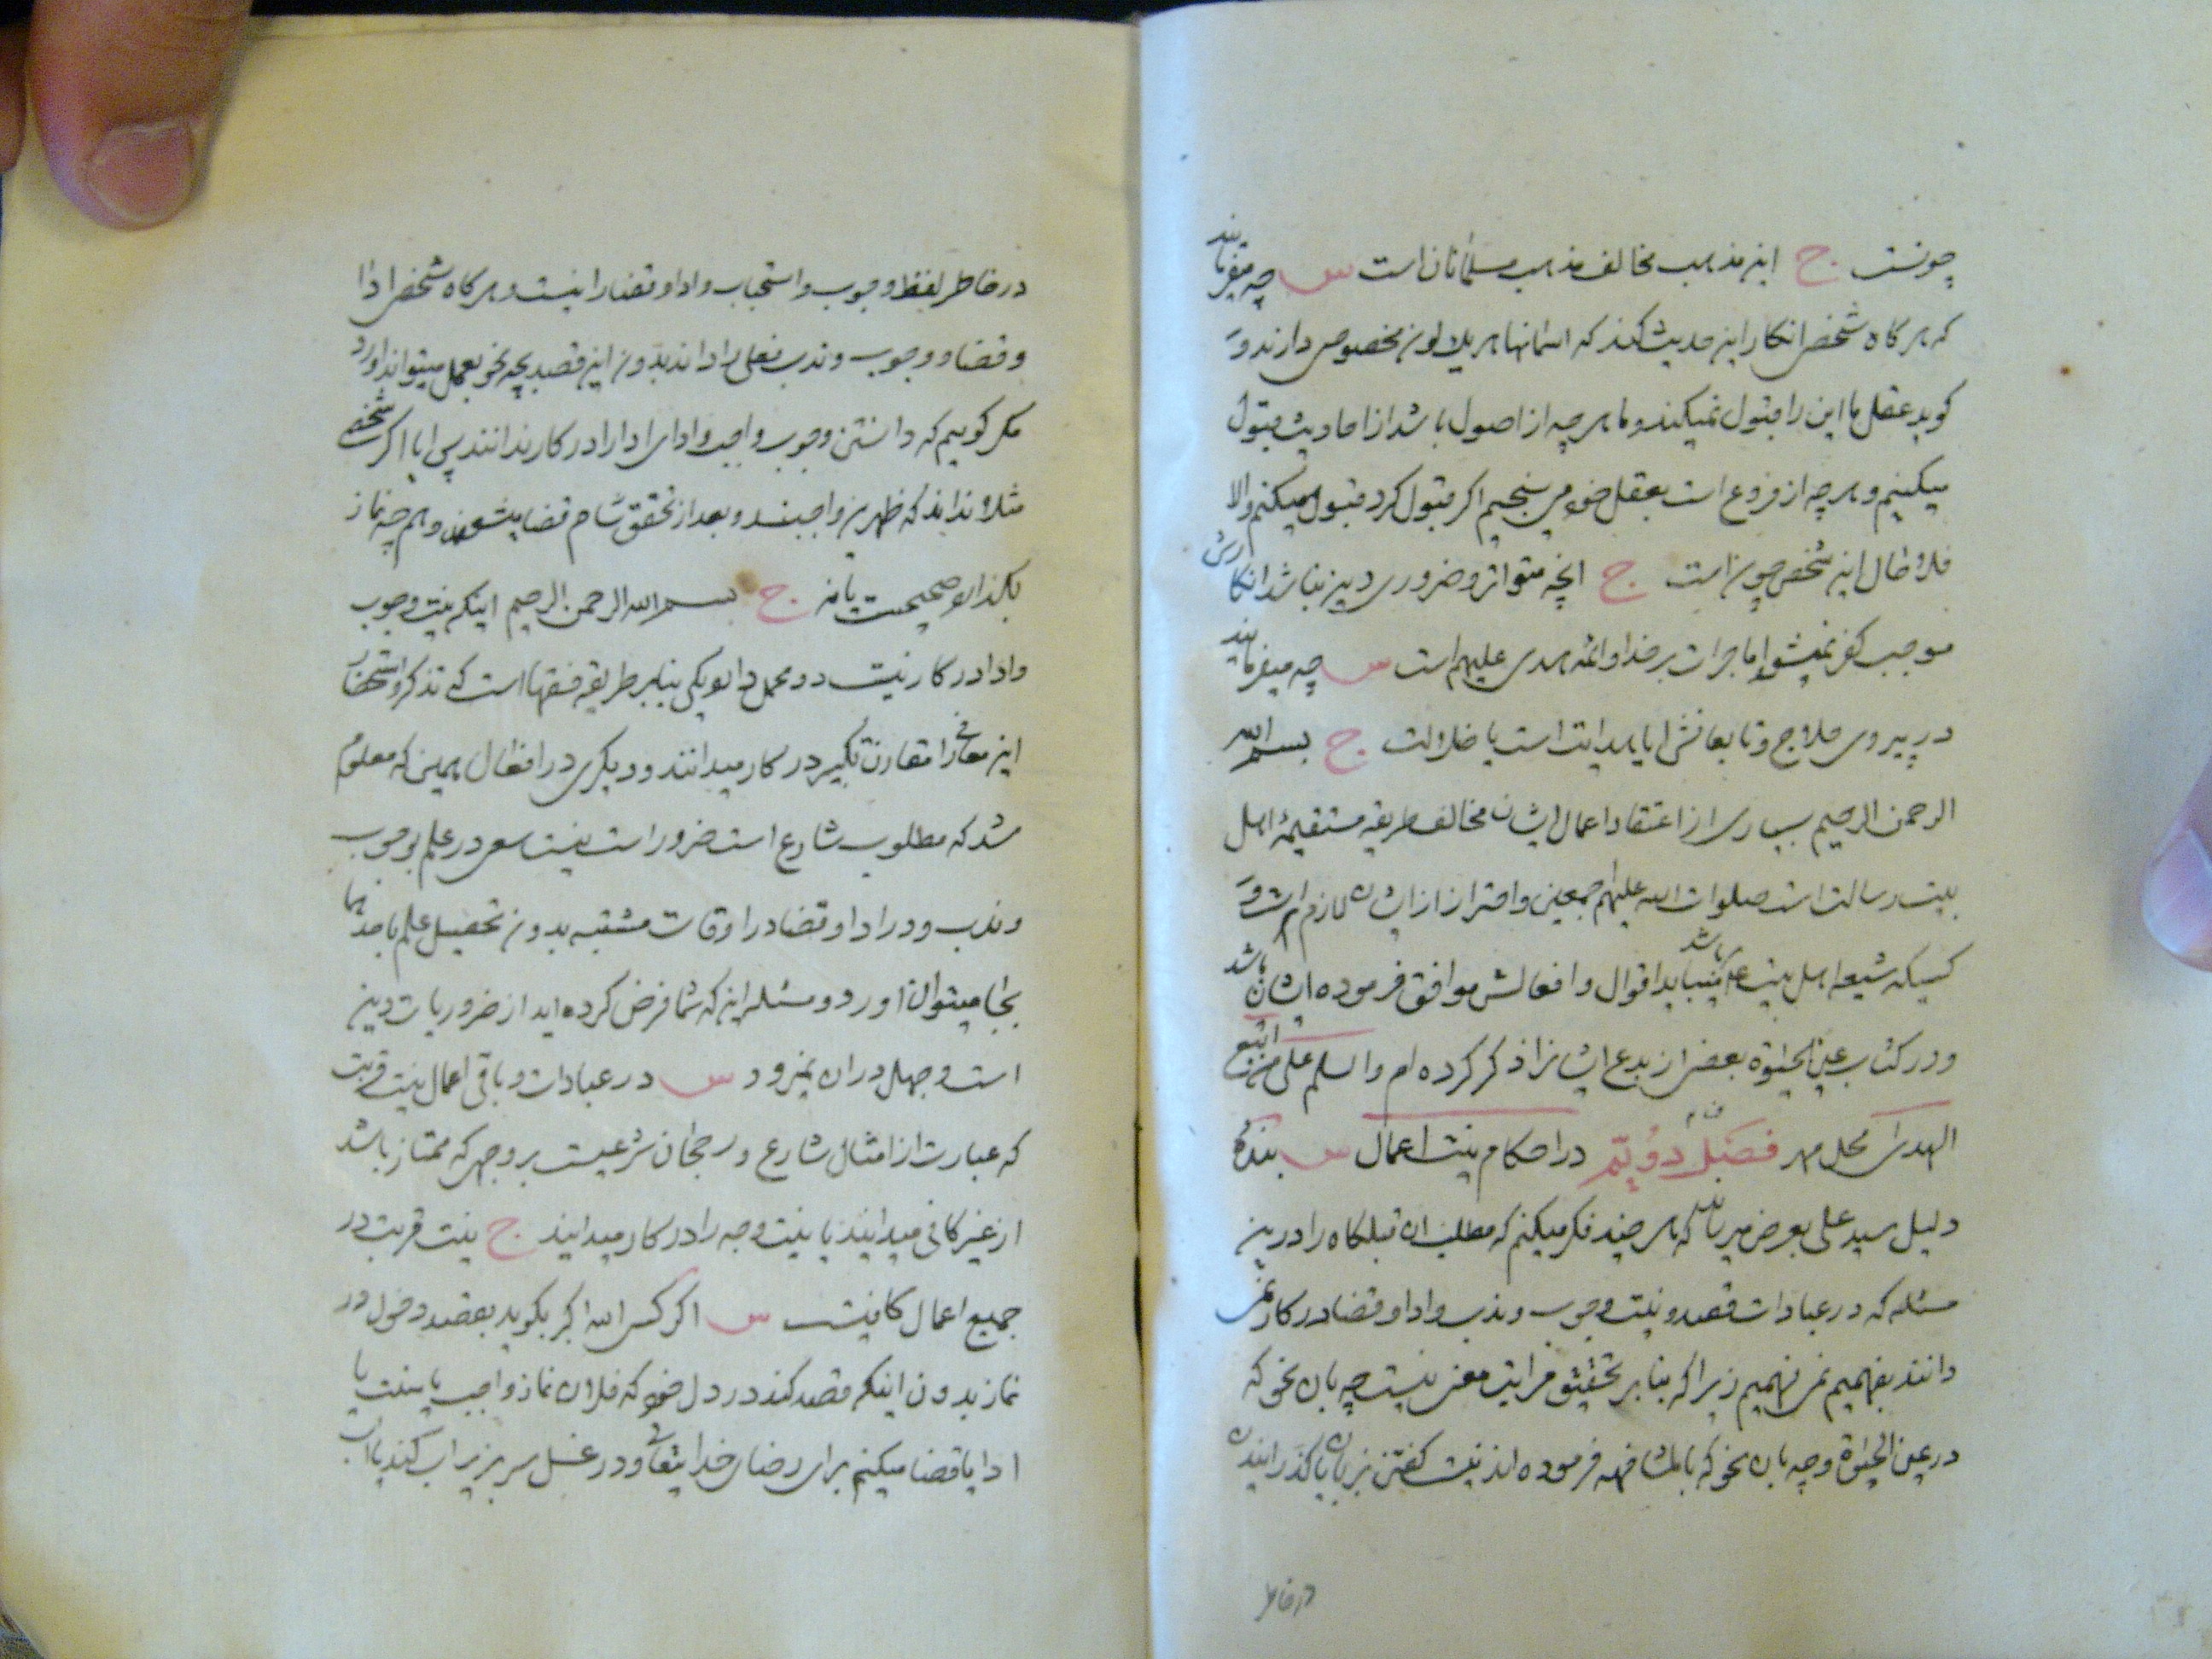 چونست ج این مذهب مخالف مذهب مسلمانان است س چه میفرمایند
که هر گاه شخصی انکار این حدیث کند که اسمانها هر یک لون مخصوص دارند و
گوید عقل ما این را قبول نمیکند و ما هر چه از اصول باشد از احادیث قبول
میکنیم و هر چه از فروع است بعقل خود می سنجیم اگر قبول کرد قبول میکنیم والا
فلا حال این شخص چون است ج انچه متواتر و ضروری دین نباشد انکارش
موجب کفر نمیشود اما جرات بر خدا و ائمه هدی علیهم است س چه میفرمایند
در پیروی حلاج و تابعانش ایا هدایت است یا ضلالت ج بسم الله
الرحمن الرحیم بسیاری از اعتقاد و اعمال ایشان مخالف طریقه مستقیمهٔ اهل
بیت رسالت است صلوات الله علیهم اجمعین و احتراز از ایشان لازم است و
کسیکه شیعه اهل بیت باشد میباید اقوال و افعالش موافق فرموده ایشان باشد
و در کتاب عین الحیوة بعضی از بدع ایشانرا ذکر کرده ام والسلم علی من اتبع
الهدی محل مهر فصل دویّم در احکام نیت اعمال س بندهٔ
دلیل سید علی بعرض میرساند که هر چند فکر میکنم که مطلب ان قبله گاه را درین
مسئله که در عبادات قصد و نیت وجوب و ندب و ادا و قضا در کار نمی
دانند بفهمیم نمی فهمیم زیرا که بنا بر تحقیق نیست چه بان نحو که
در عین الحیوة و چه بان نحو که بالمشافهه فرموده اند نیت گفتن بزبان یا گذرانیدن
در خاطر
در خاطر لفظ وجوب و استحباب و ادا و قضا را نیست و هر گاه شخص ادا
و قضا و وجوب و ندب فعلی را داند بدون این قصد بچه نحو بعمل میتواند اورد
مگر گوییم که دانستن وجوب واجب و ادای ادا را در کار ندانند پس ایا اگر شخصی
مثلا نداند که ظهرین واجبند و بعد از تحقق شام قضا میشوند و هم چه نماز
بگذارد صحیحست یا نه ج بسم الله الرحمن الرحیم اینکه نیت وجوب
و ادا در کار نیست دو محمل دارد یکی بنا بر طریقه فقها است که تذکر و استحضار
این معانی را مقارن تکبیر در کار میدانند و دیگری در افعال همین که معلوم
شد که مطلوب شارع است ضرور است نیت سعی در علم بوجوب
و ندب و در ادا و قضا در اوقات مشتبه بدون تحصیل علم باحدهما
بجا میتوان اورد و مسئله این که شما فرض کرده اید از ضروریات دین
است و جهل در ان نمیرود س در عبادات و باقی اعمال نیت قربت
که عبارت از امتثال شارع و رجحان شرعیست بر وجهی که ممتاز باشد
از غیر کافی میدانید یا نیت وجه را در کار میدانید ج نیت قربت در
جمیع اعمال کافیست س اگر کسی الله اکبر بگوید بقصد دخول در
نماز بدون اینکه قصد کند در دل خود که فلان نماز واجب یا سنت یا
ادا یا قضا میکنم برای رضای خدایتعالی و در غسل سر بزیر اب کند یا اب